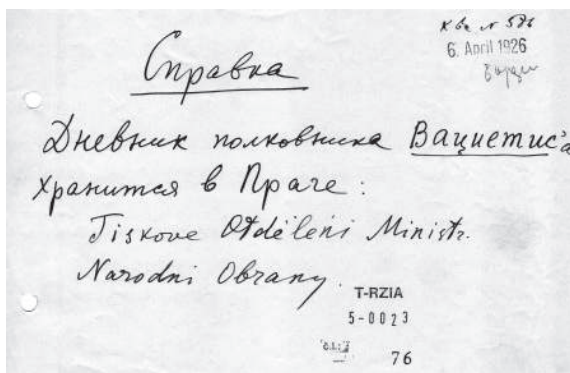 К вх № 576
6. April 1926
Справка
Дневник полковника Вациетис'а
хранится в Праге:
Tiskove Otděleni Ministr.
Narodni Obrany.
T-RZIA
5-0023
76